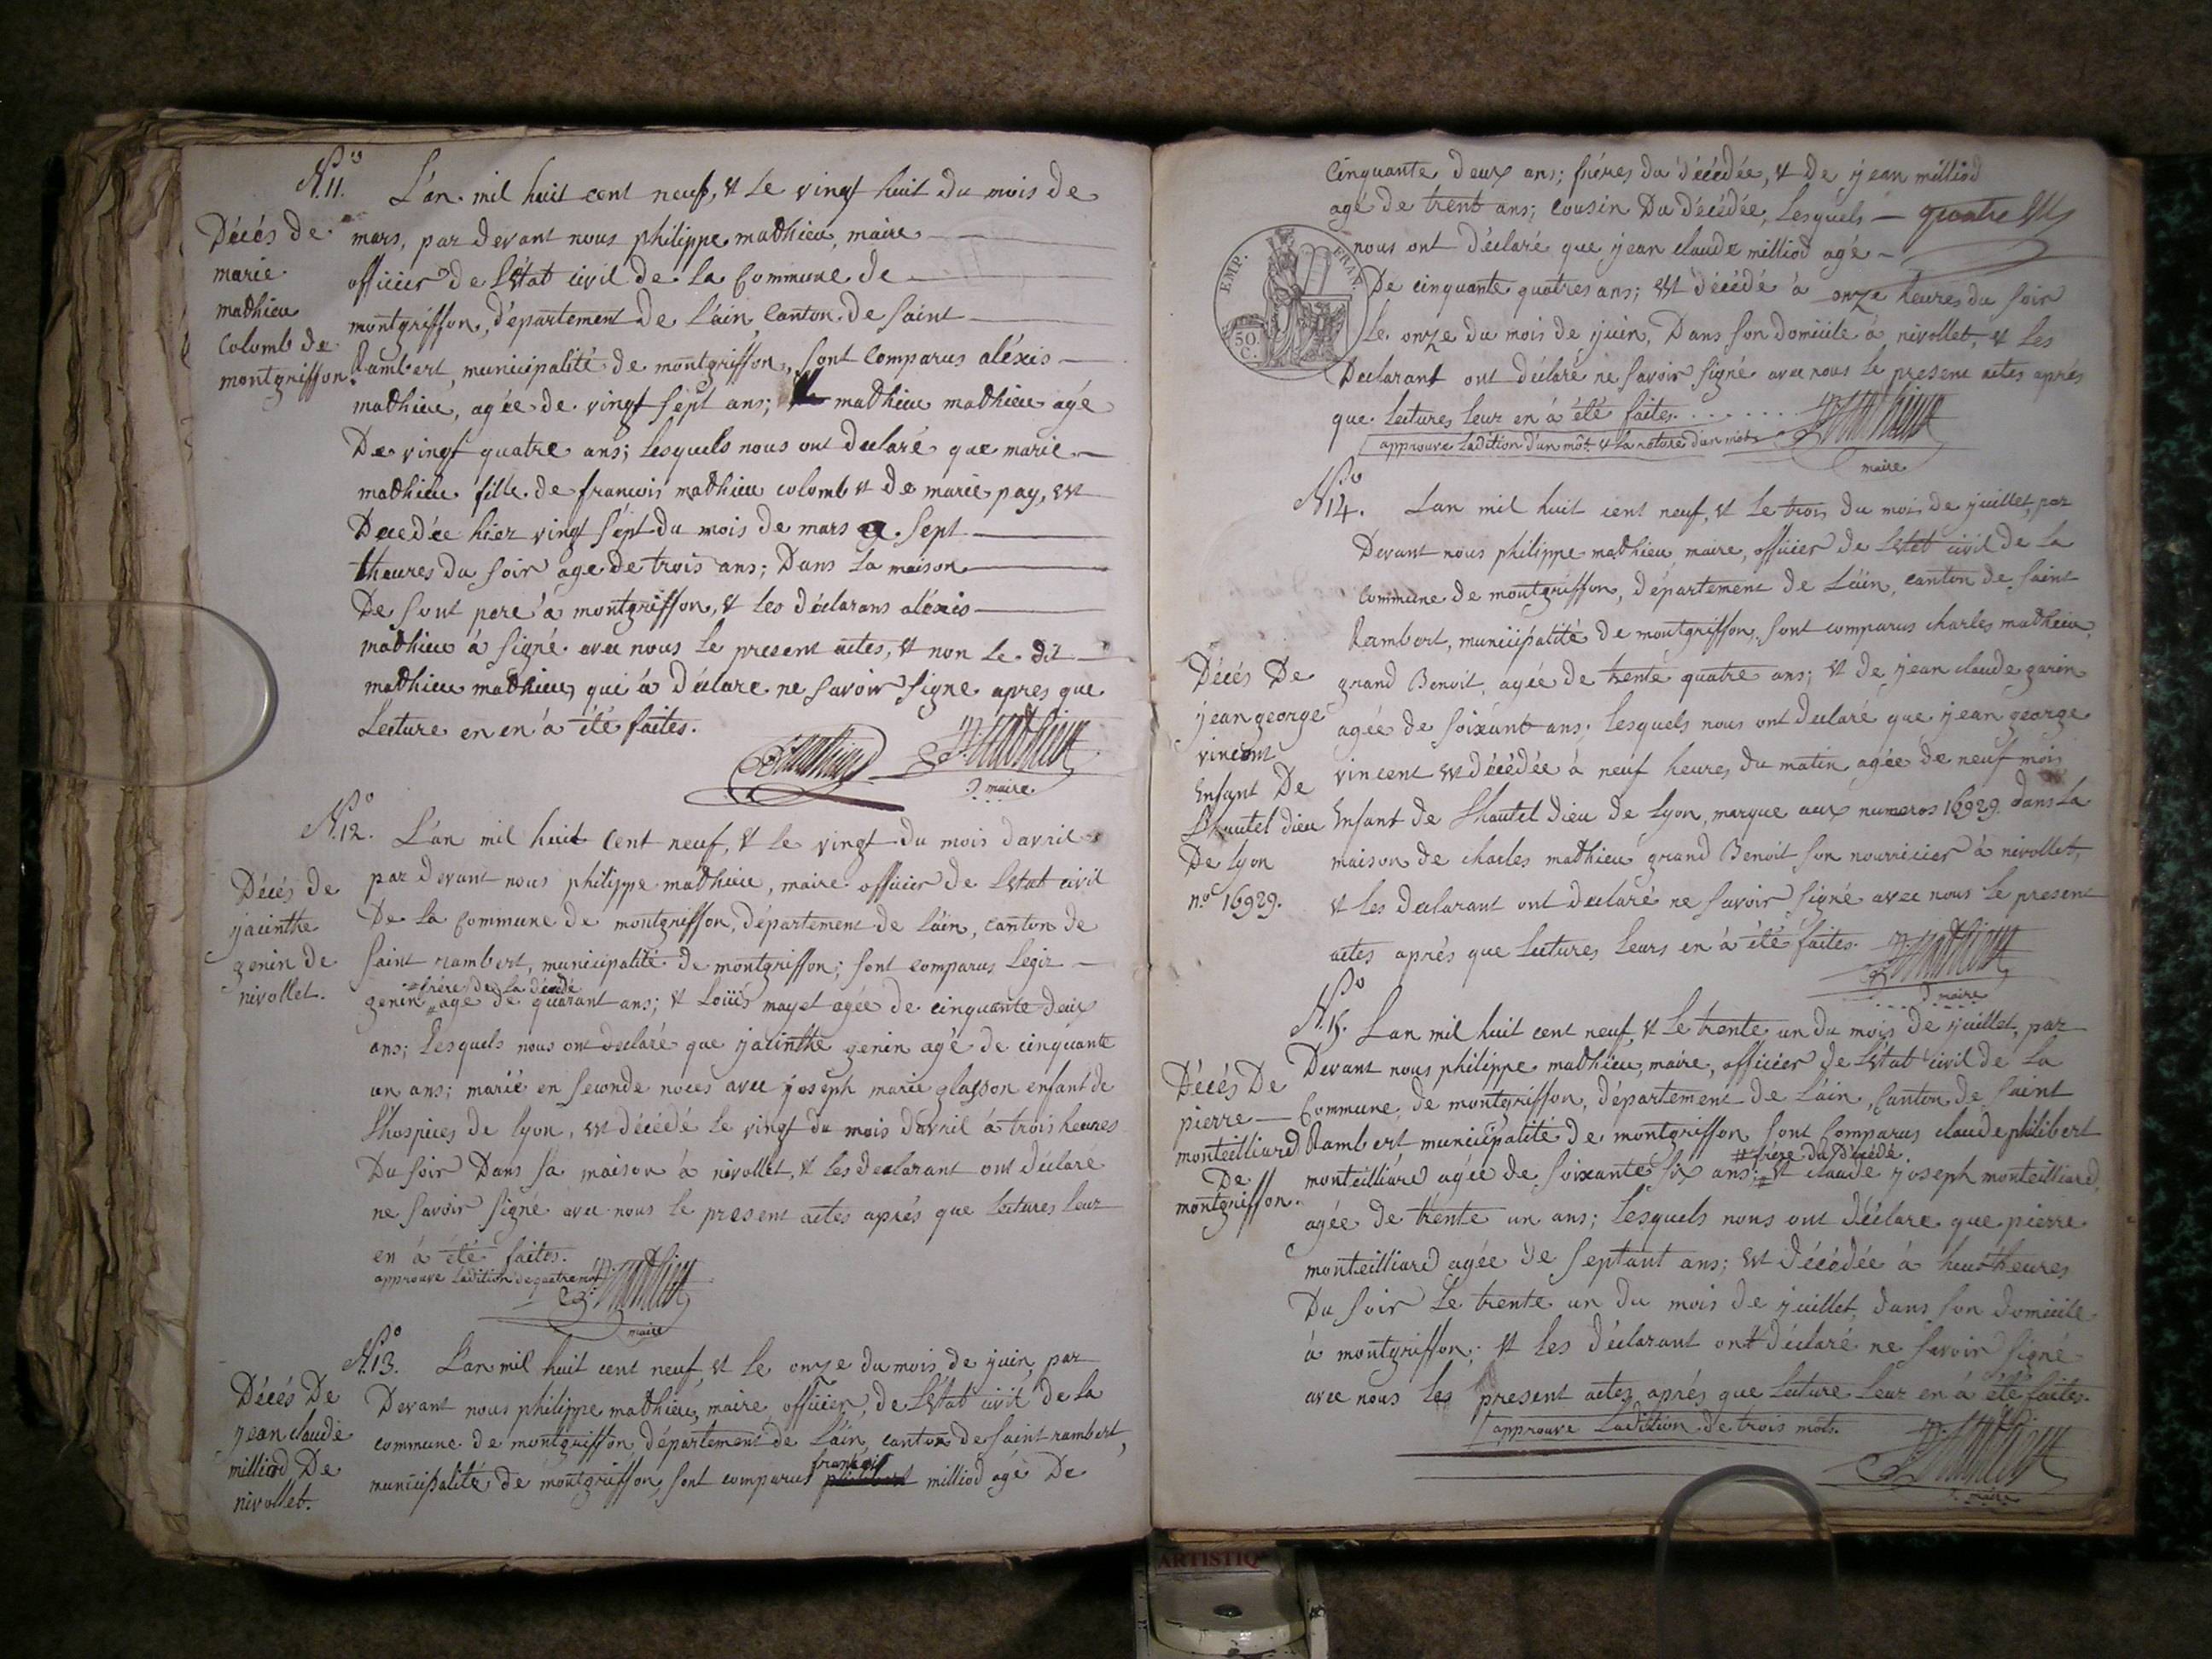 N.º 11. L'an mil huit cent neuf, et le vingt huit du mois de
Décés de
marie
mathieu
Colomb de
montgriffon.
mars, par devant nous philippe mathieu, maire
officier de l'état civil de la Commune de
montgriffon, département de l'ain, Canton de saint
Rambert, municipalité de montgriffon, sont Comparus aléxis
mathieu, agée de vingt sept ans; mathieu mathieu agé
De vingt quatre ans; lesquels nous ont declaré que marie
mathieu fille de francois mathieu colomb et de marie pay, est
Decedée hier vingt sépt du mois de mars a sept
heures du soir age de trois ans; Dans la maison
De sont pere à montgriffon, et les déclarans aléxis
mathieu à signé avec nous le present actes, et non le dit
mathieu mathieu, qui à déclare ne savoir signe apres que
Lecture en en à été faites.
P. Mathieu
maire
N.º 12. L'an mil huit Cent neuf, et le vingt du mois d'avril
Décés de
jacinthe
genin de
nivollet.
par devant nous philippe mathieu, maire officier de l'état civil
De la Commune de montgriffon, département de l'ain, canton de
saint rambert, municipalité de montgriffon; sont comparus Legir
= frères de la décédé
genin = age de quarant ans; et Loüis mayet agée de cinquante deux
ans; Lesquels nous ont declaré que jacinthe genin agé de cinquante
un ans; marié en seconde noces avec joseph marie glasson enfant de
l'hospices de lyon, est décédé le vingt du mois d'avril à trois heures
Du soir Dans sa maison à nivollet, et les declarant ont déclare
ne savoir signé avec nous le present actes aprés que lectures leur
en à été faites.
approuve l'adition de quatre mot
P. Mathieu
maire
N.º 13. L'an mil huit cent neuf, et le onze du mois de juin, par
Décés De
jean claude
milliod De
nivollet.
Devant nous philippe mathieu, maire officier, de L'état civil de la
commune de montgriffon, département de l'ain, canton de saint rambert,
françois
municipalité de montgriffon, sont comparus philibert milliod agé De
Cinquante deux ans; fréres du décédée, et de jean milliod
agé de trent ans; cousin Du décédée, Lesquels — quatre
nous ont déclaré que jean claude milliod agé
EMP. FRAN.
50. C.
De cinquante quatres ans; est décédé à onze heures du soir
Le onze du mois de juin, Dans son domicile à nivollet, et les
Declarant ont déclaré ne savoir signé avec nous le present actes aprés
que lectures leur en à été faites.
approuve l'adition d'un môt et la rature d'un mot
P. Mathieu
maire
N.º 14. L'an mil huit cent neuf, et le trois du mois de juillet, par
Devant nous philippe mathieu, maire, officier de l'état civil de la
commune de montgriffon, département de l'ain, canton de saint
Rambert, municipalité de montgriffon, sont comparus charles mathieu
Décés De
jean george
vincent
Enfant De
L'hautel dieu
De lyon
n.º 16929.
grand Benoit, agée de trente quatre ans; et de jean claude garin
agée de soixant ans; lesquels nous ont declaré que jean george
vincent est décédée à neuf heures du matin agée de neuf mois
Enfant de L'hautel Dieu de lyon, marque aux numeros 16929. dans la
maison de charles mathieu grand Benoit son nourricier à nivollet,
et les declarant ont declaré ne savoir signé avec nous le present
actes aprés que lectures leurs en à été faites.
P. Mathieu
maire
N.º 15. L'an mil huit cent neuf, et le trente un du mois de juillet, par
Décés De
pierre
monteilliard
De
montgriffon.
Devant nous philippe mathieu, maire, officier de l'état civil de la
Commune de montgriffon, département de l'ain, Canton de saint
Rambert municipalité de montgriffon sont Comparus claude philibert
# frère du Décédé
monteilliard agée de soixante six ans; # et claude joseph monteilliard,
agée de trente un ans; lesquels nous ont déclare que pierre
monteilliard agée de septant ans; est décédée à huit heures
Du soir le trente un du mois de juillet, dans son domicile
à montgriffon; et les déclarant ont déclaré ne savoir signé
avec nous les present actes aprés que lecture leur en à été faites.
approuve L'adition de trois mots.
P. Mathieu
maire
ARTISTIQ